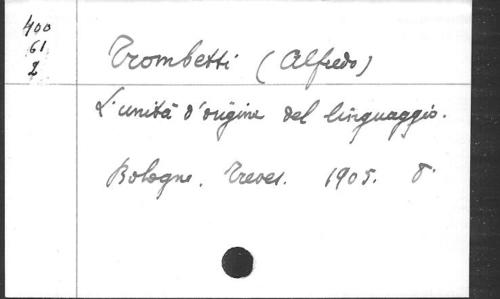 400
61
2
Trombetti (Alfredo)
L'unità d'origine del linguaggio.
Bologne. Treves. 1905. 8°